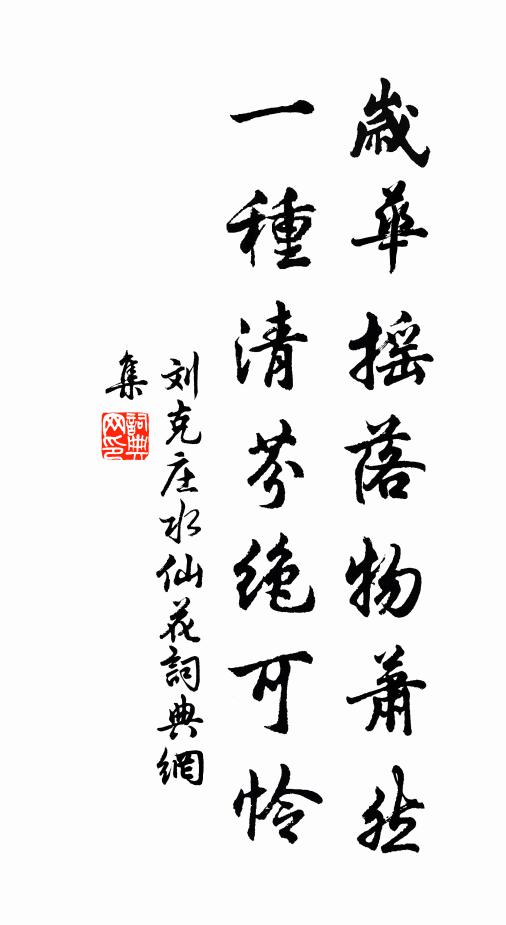 歲華摇落物蕭然
一種清芬绝可怜
刘克庄水仙花詞典網
集
詞典網印